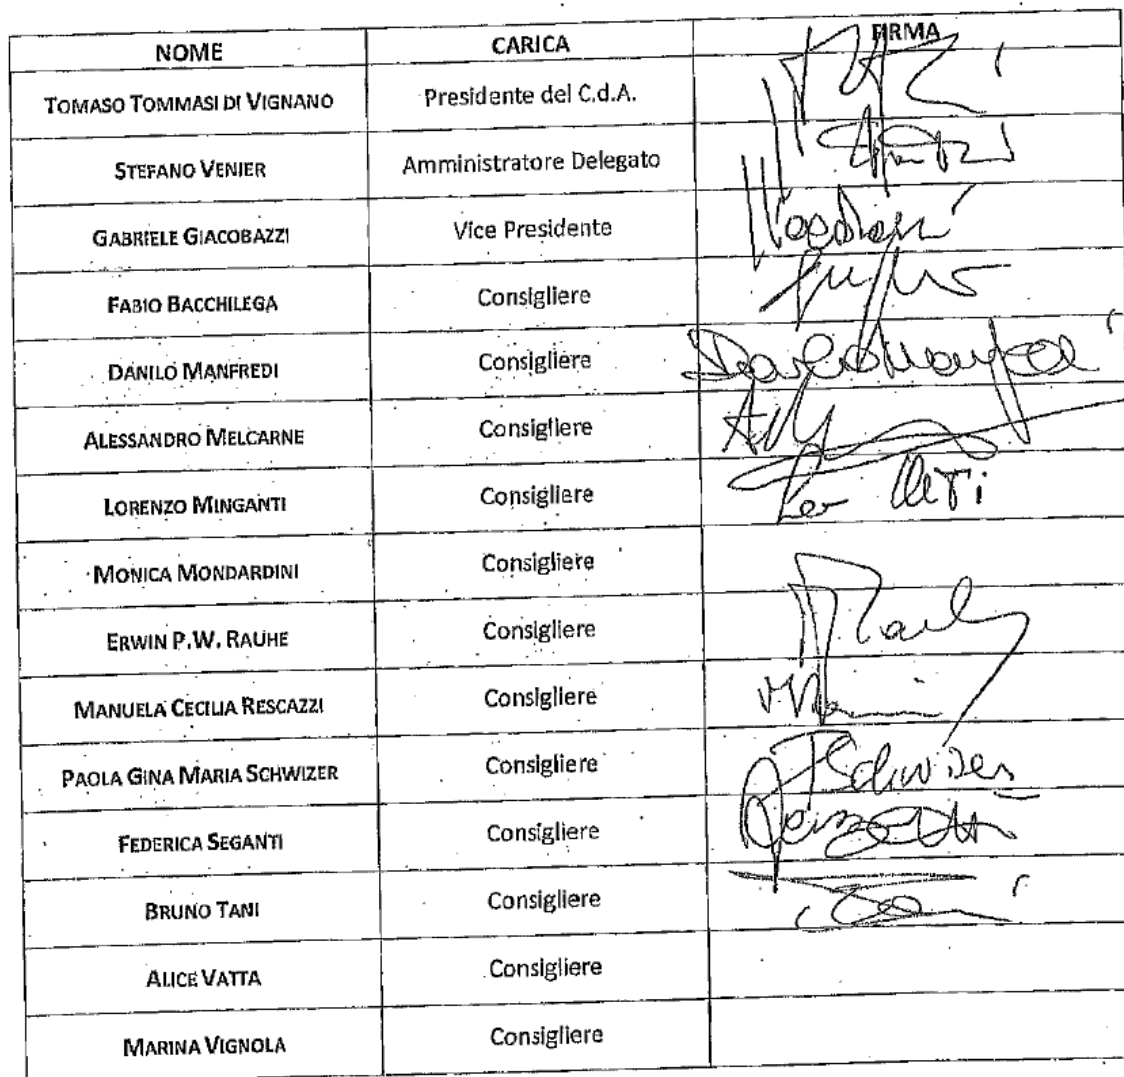 NOME CARICA FIRMA
TOMASO TOMMASI DI VIGNANO Presidente del C.d.A.
STEFANO VENIER Amministratore Delegato
GABRIELE GIACOBAZZI Vice Presidente
FABIO BACCHILEGA Consigliere
DANILO MANFREDI Consigliere Danilo Manfredi
ALESSANDRO MELCARNE Consigliere
LORENZO MINGANTI Consigliere
MONICA MONDARDINI Consigliere
ERWIN P.W. RAUHE Consigliere
MANUELA CECILIA RESCAZZI Consigliere
PAOLA GINA MARIA SCHWIZER Consigliere PSchwizer
FEDERICA SEGANTI Consigliere
BRUNO TANI Consigliere
ALICE VATTA Consigliere
MARINA VIGNOLA Consigliere